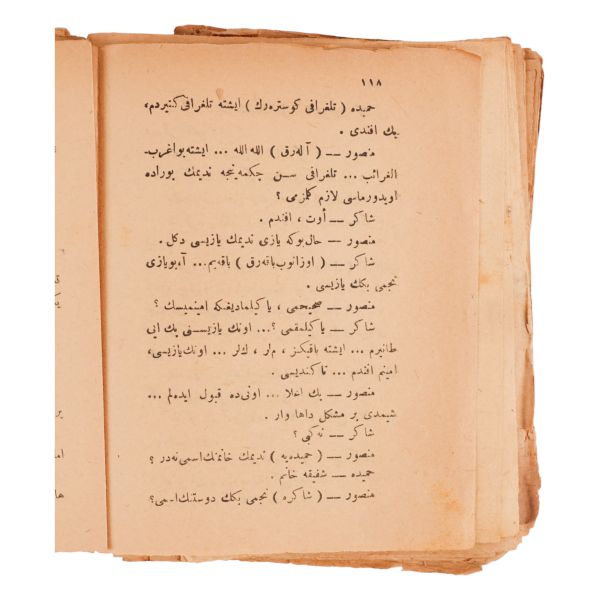 ١١٨
حمیده ( تلغرافی كوستره‌رك ) ایشته تلغرافی كتیردم،
بك افندی .
منصور — ( آله‌رق ) الله الله ... ایشته بو اغرب‌
الغرائب ... تلغرافی سن چكمه‌ینجه ندیمك بوراده
اویدورماسی لازم كلمزمی ؟
شاكر — أوت ، افندم .
منصور — حال بوكه یازی ندیمك یازیسی دكل .
شاكر — ( اوزانوب باقه‌رق ) باقه‌یم... آ، بو یازی
نجمی بكك یازیسی .
منصور — صحیحمی ، یا كیلمادیغكه امینمیسك ؟
شاكر — یا كیلمقمی ؟... اونك یازیسنی پك ایی
طانیرم ... ایشته باقیكز ، م‌لر ، ك‌لر ... اونك یازیسی،
امینم افندم ... تا كندیسی .
منصور — پك اعلا ... اونی‌ده قبول ایده‌لم ...
شیمدی بر مشكل داها وار .
شاكر — نه كبی ؟
منصور — ( حمیده‌یه ) ندیمك خانمنك اسمی نه‌در ؟
حمیده — شفیقه خانم .
منصور — ( شاكره ) نجمی بكك دوستنك اسمی؟